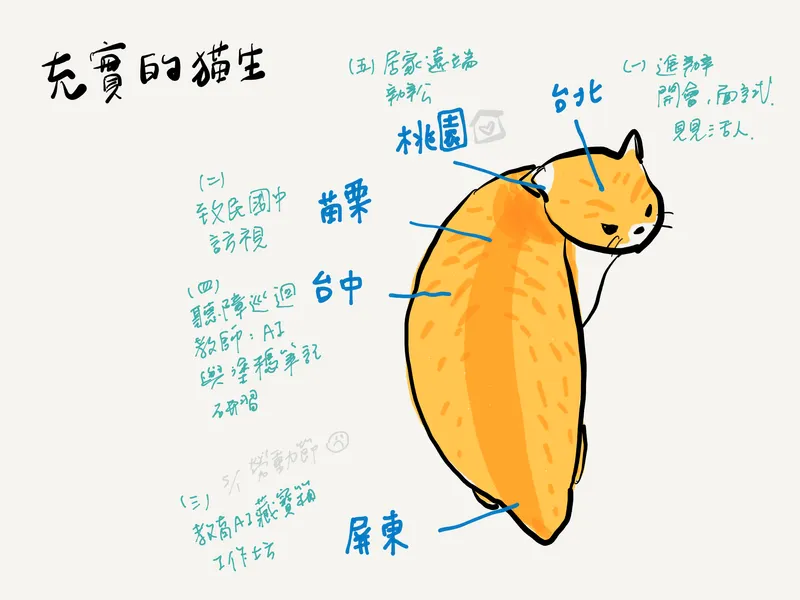 充實的貓生
(五)居家遠端
辦公
台北
(一)進辦
開會,面試,
見見活人.
桃園
(二)
致民國中
訪視
苗栗
(四)
聽障巡迴
教師:AI
與塗鴉筆記
研習
台中
5/1 勞動節
(三)
教育AI藏寶箱
工作坊
屏東